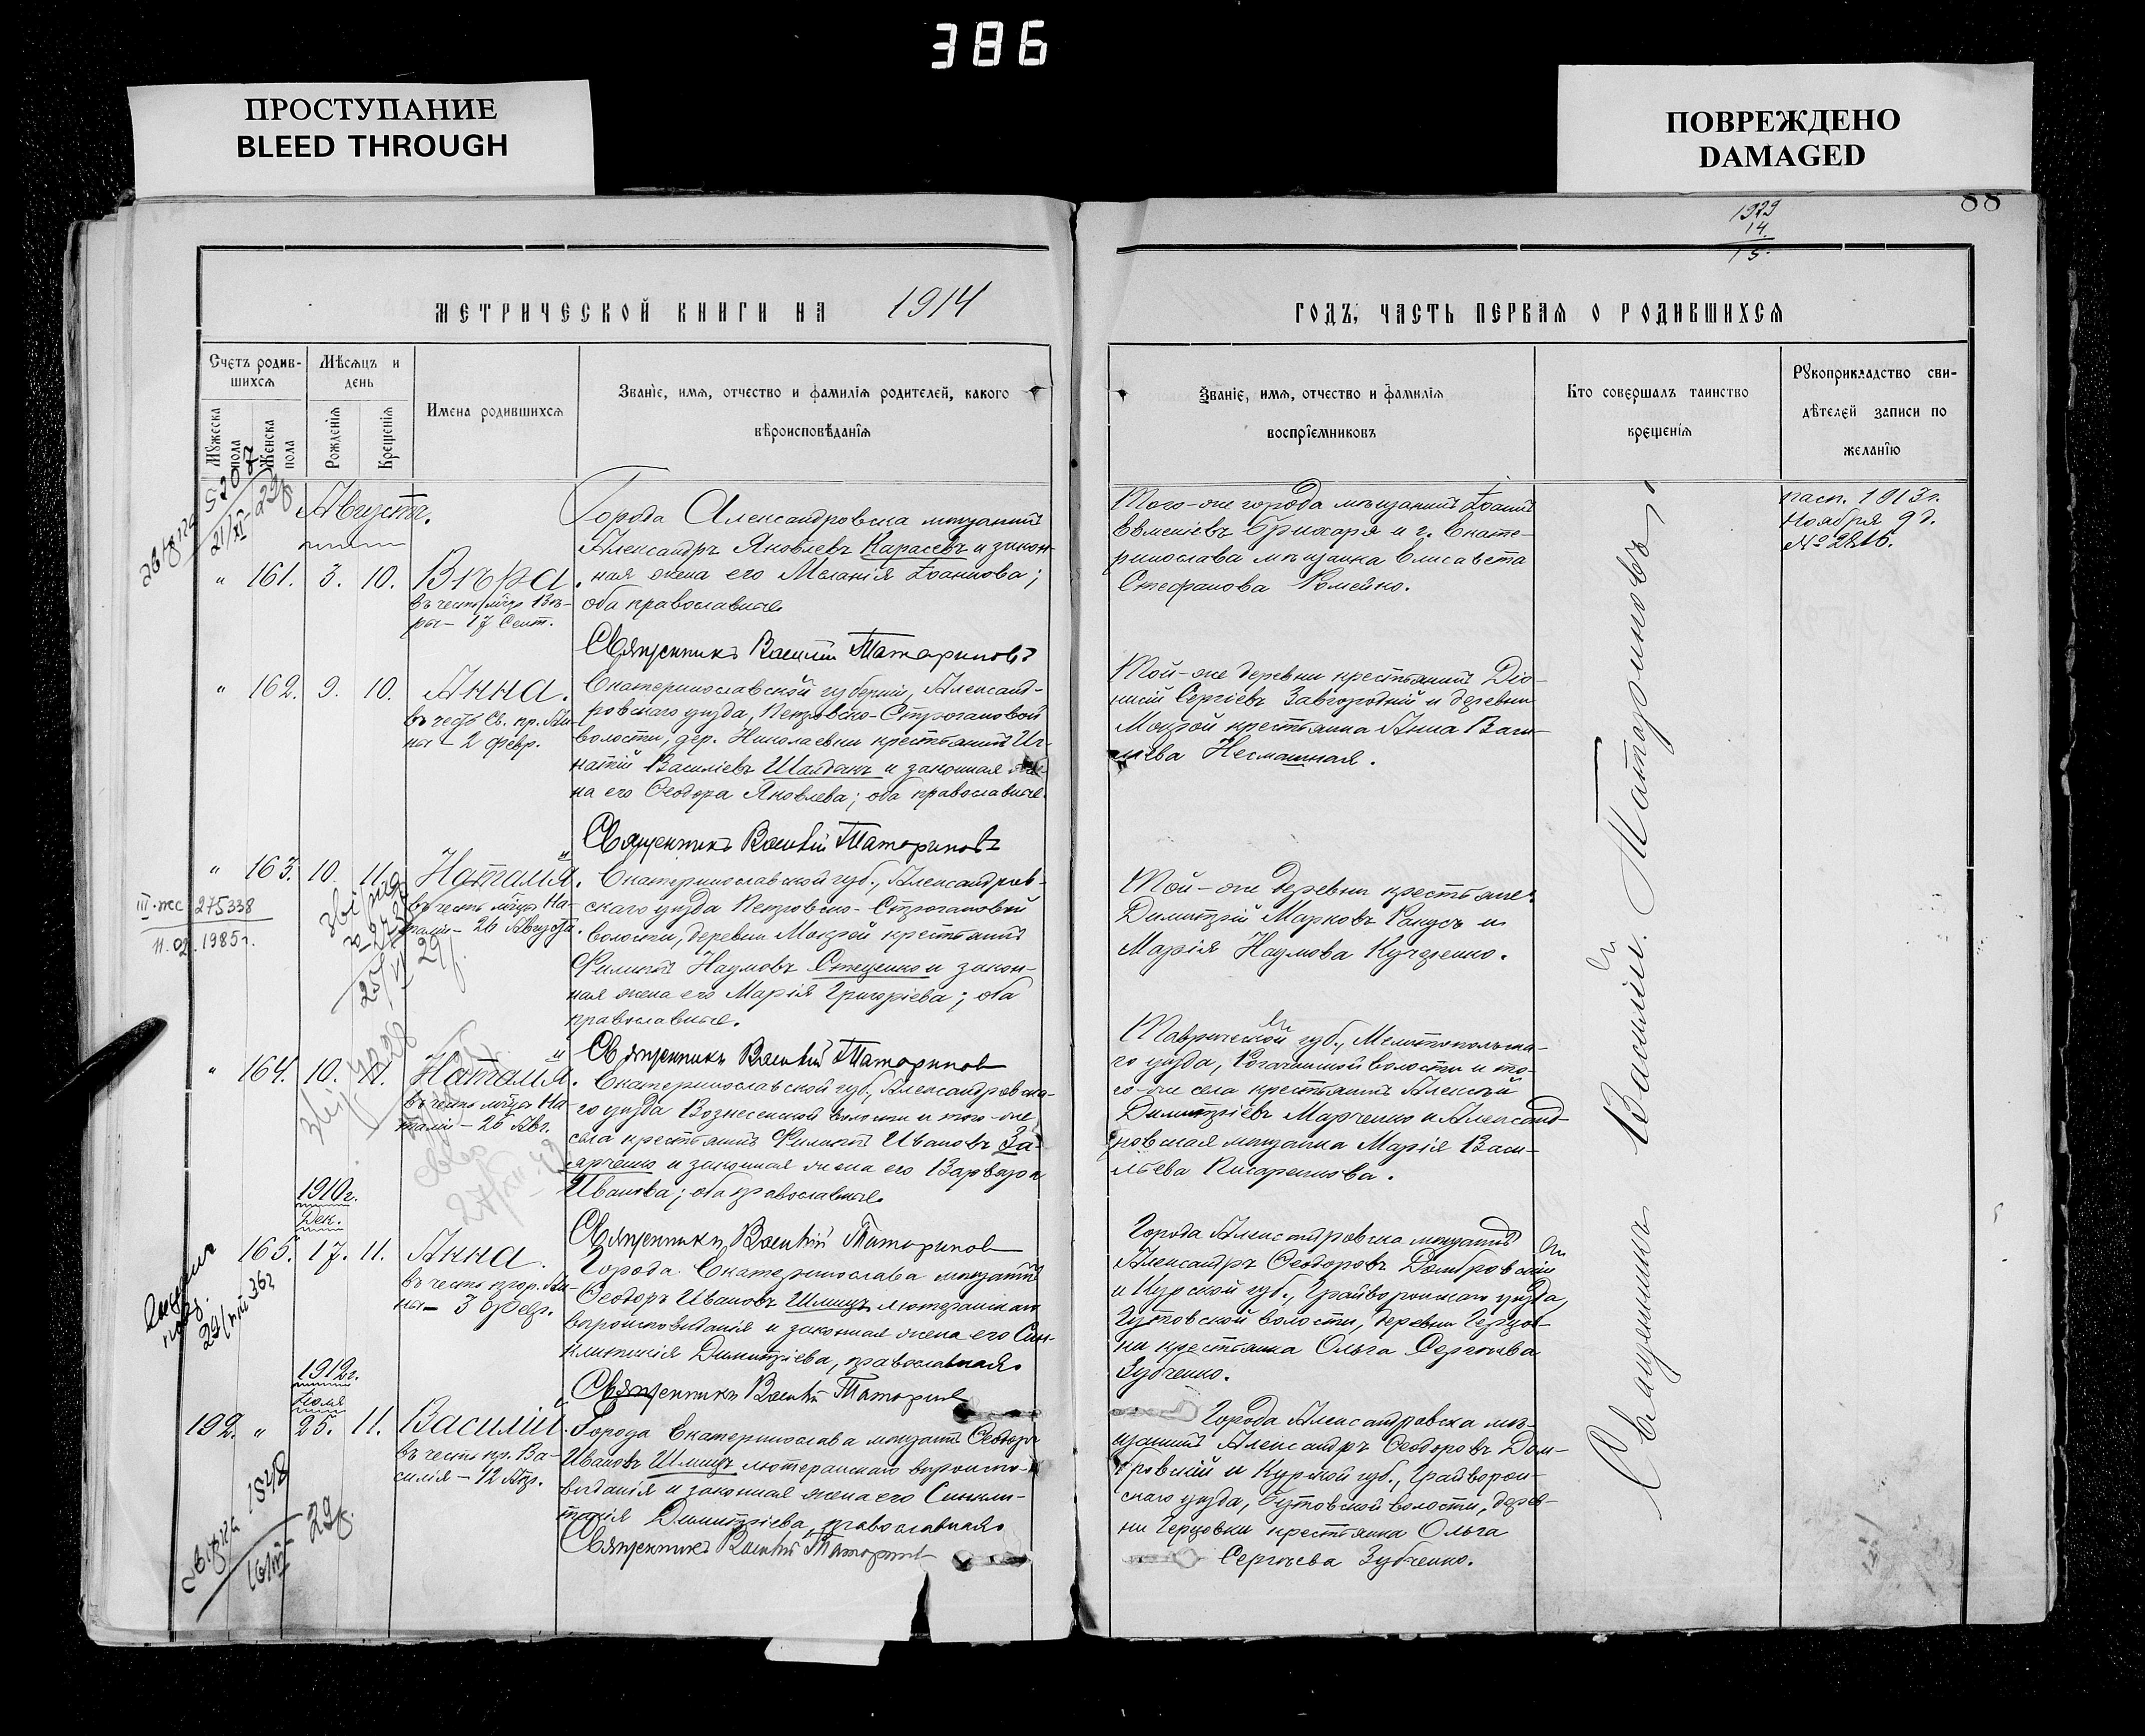 386
ПРОСТУПАНИЕ
BLEED THROUGH
ПОВРЕЖДЕНО
DAMAGED
88
1929
14
15
МЕТРИЧЕСКОЙ КНИГИ НА 1914
ГОДЪ, ЧАСТЬ ПЕРВАЯ О РОДИВШИХСЯ
Счетъ родив-
шихся
Мѣсяцъ и
день
Мꙋжеска
пола
Женска
пола
Рожденія
Крещенія
Имена родившихся
Званіе, имя, отчество и фамилія родителей, какого
вѣроисповѣданія
Званіе, имя, отчество и фамилія
воспріемниковъ
Кто совершалъ таинство
крещенія
Рꙋкоприкладство сви-
дѣтелей записи по
желанію
Августъ.
" 161. 3. 10. Вѣра.
въ честь мчцы Вѣ-
ры – 17 Сент.
Города Александровска мѣщанинъ
Александръ Яковлевъ Карасевъ и закон-
ная жена его Меланія Іоаннова;
оба православные
Священникъ Василій Татариновъ
Того-же города мѣщанинъ Іоаннъ
Евменіевъ и г. Екате-
ринослава мѣщанка Елисавета
Стефанова Ромейко.
пасп. 1913 г.
Ноября 9 д.
№ 2816.
" 162. 9. 10. Анна.
въ честь Св. пр. Ан-
ны – 2 февр.
Екатеринославской губерніи, Александ-
ровскаго уѣзда, Петровско-Строгановой
волости, дер. Николаевки крестьянинъ Иг-
натій Василіевъ и законная же-
на его Ѳеодора Яковлева; оба православные.
Священникъ Василій Татариновъ
Той-же деревни крестьянинъ Діо-
нисій Сергіевъ Завгородній и деревни
Мокрой крестьянка Анна Васи-
ліева Несмашная.
" 163. 10. 11. Наталія.
въ честь мчцы На-
таліи – 26 Августа.
Екатеринославской губ., Александров-
скаго уѣзда Петровско-Строгановой
волости, деревни Мокрой крестьянинъ
Филиппъ Наумовъ Стеценко и закон-
ная жена его Марія Григоріева; оба
православные.
Священникъ Василій Татариновъ
Той-же деревни крестьяне:
Димитрій Марковъ Ракусъ и
Марія Наумова Кучеренко.
III-жс 275338
11.02.1985 г.
" 164. 10. 11. Наталія.
въ честь мчцы На-
таліи – 26 Авг.
Екатеринославской губ., Александровска-
го уѣзда Вознесенской волости и того-же
села крестьянинъ Филиппъ Ивановъ За-
харченко и законная жена его Варвара
Иванова; оба православные.
Священникъ Василій Татариновъ
Таврической губ., Мелитопольска-
го уѣзда, Рогачинской волости и то-
го-же села крестьянинъ Алексѣй
Димитріевъ Марченко и Александ-
ровская мѣщанка Марія Васи-
льева Писаренкова.
1910 г.
Дек.
165. 17. 11. Анна.
въ честь прор. Ан-
ны – 3 февр.
Города Екатеринослава мѣщанинъ
Ѳеодоръ Ивановъ Шмицъ лютеранскаго
вѣроисповѣданія и законная жена его Син-
клитикія Димитріева, православная.
Священникъ Василій Татариновъ
Города Александровска мѣщанинъ
Александръ Ѳеодоровъ Домбровскій
и Курской губ., Грайворонскаго уѣзда,
Бутовской волости, деревни Герцов-
ки крестьянка Ольга Сергѣева
Зубченко.
1912 г.
Іюля
192. " 25. 11. Василій.
въ честь пр. Ва-
силія – 12 Апр.
Города Екатеринослава мѣщанинъ Ѳеодоръ
Ивановъ Шмицъ лютеранскаго вѣроиспо-
вѣданія и законная жена его Синкли-
тикія Димитріева, православная.
Священникъ Василій Татариновъ
Города Александровска мѣ-
щанинъ Александръ Ѳеодоровъ Дом-
бровскій и Курской губ., Грайворон-
скаго уѣзда, Бутовской волости, дерев-
ни Герцовки крестьянка Ольга
Сергѣева Зубченко.
Священникъ Василій Татариновъ